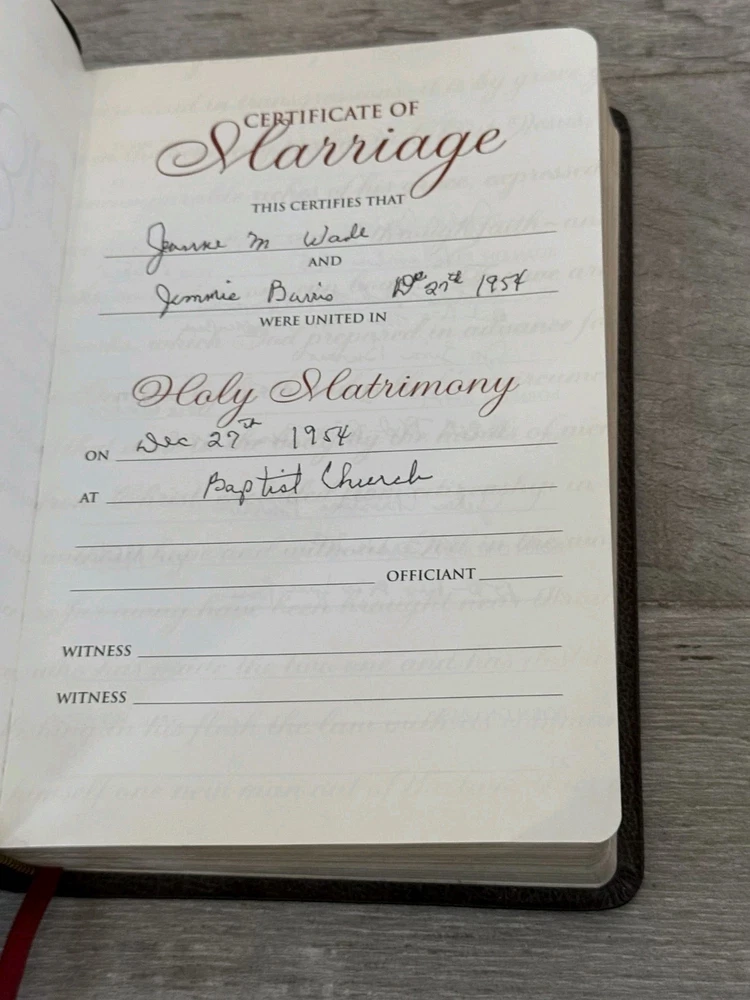 CERTIFICATE OF
Marriage
THIS CERTIFIES THAT
Jeanne M Wade
AND
Jimmie Barris Dec 27th 1954
WERE UNITED IN
Holy Matrimony
ON Dec 27th 1954
AT Baptist Church
OFFICIANT
WITNESS
WITNESS